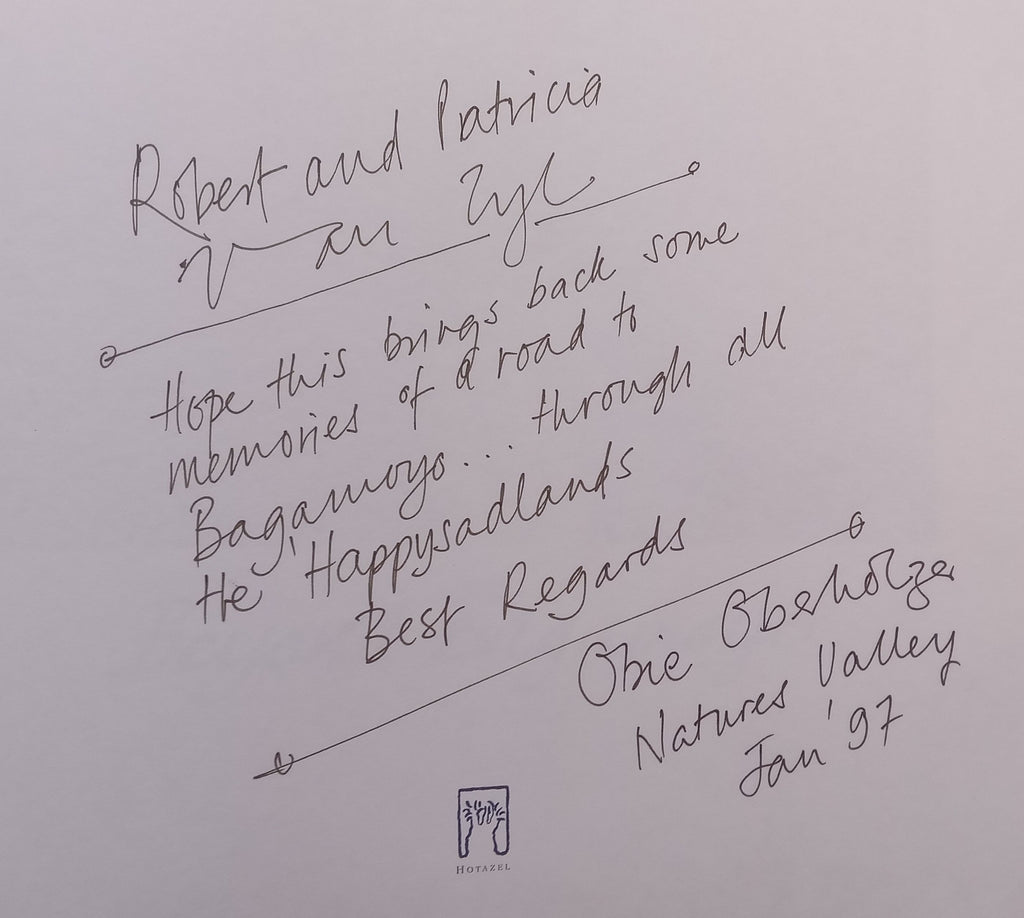 Robert and Patricia
Van Zyl
Hope this brings back some
memories of a road to
Bagamoyo... through all
the 'Happysadlands
Best Regards
Obie Oberholzer
Natures Valley
Jan '97
HOTAZEL